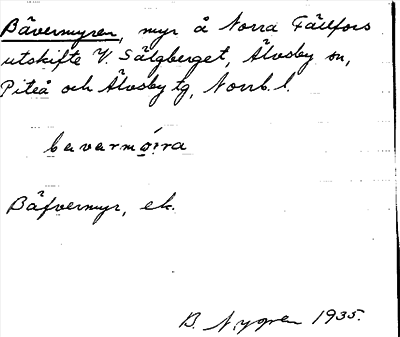 Bävermyren, myr å Norra Fällfors
utskifte V. Sälgberget, Älvsby sn,
Piteå och Älvsby tg, Norrb. l.
bavarmo̤i̯ra
Bäfvermyr, ek.
B. Nygren 1935.